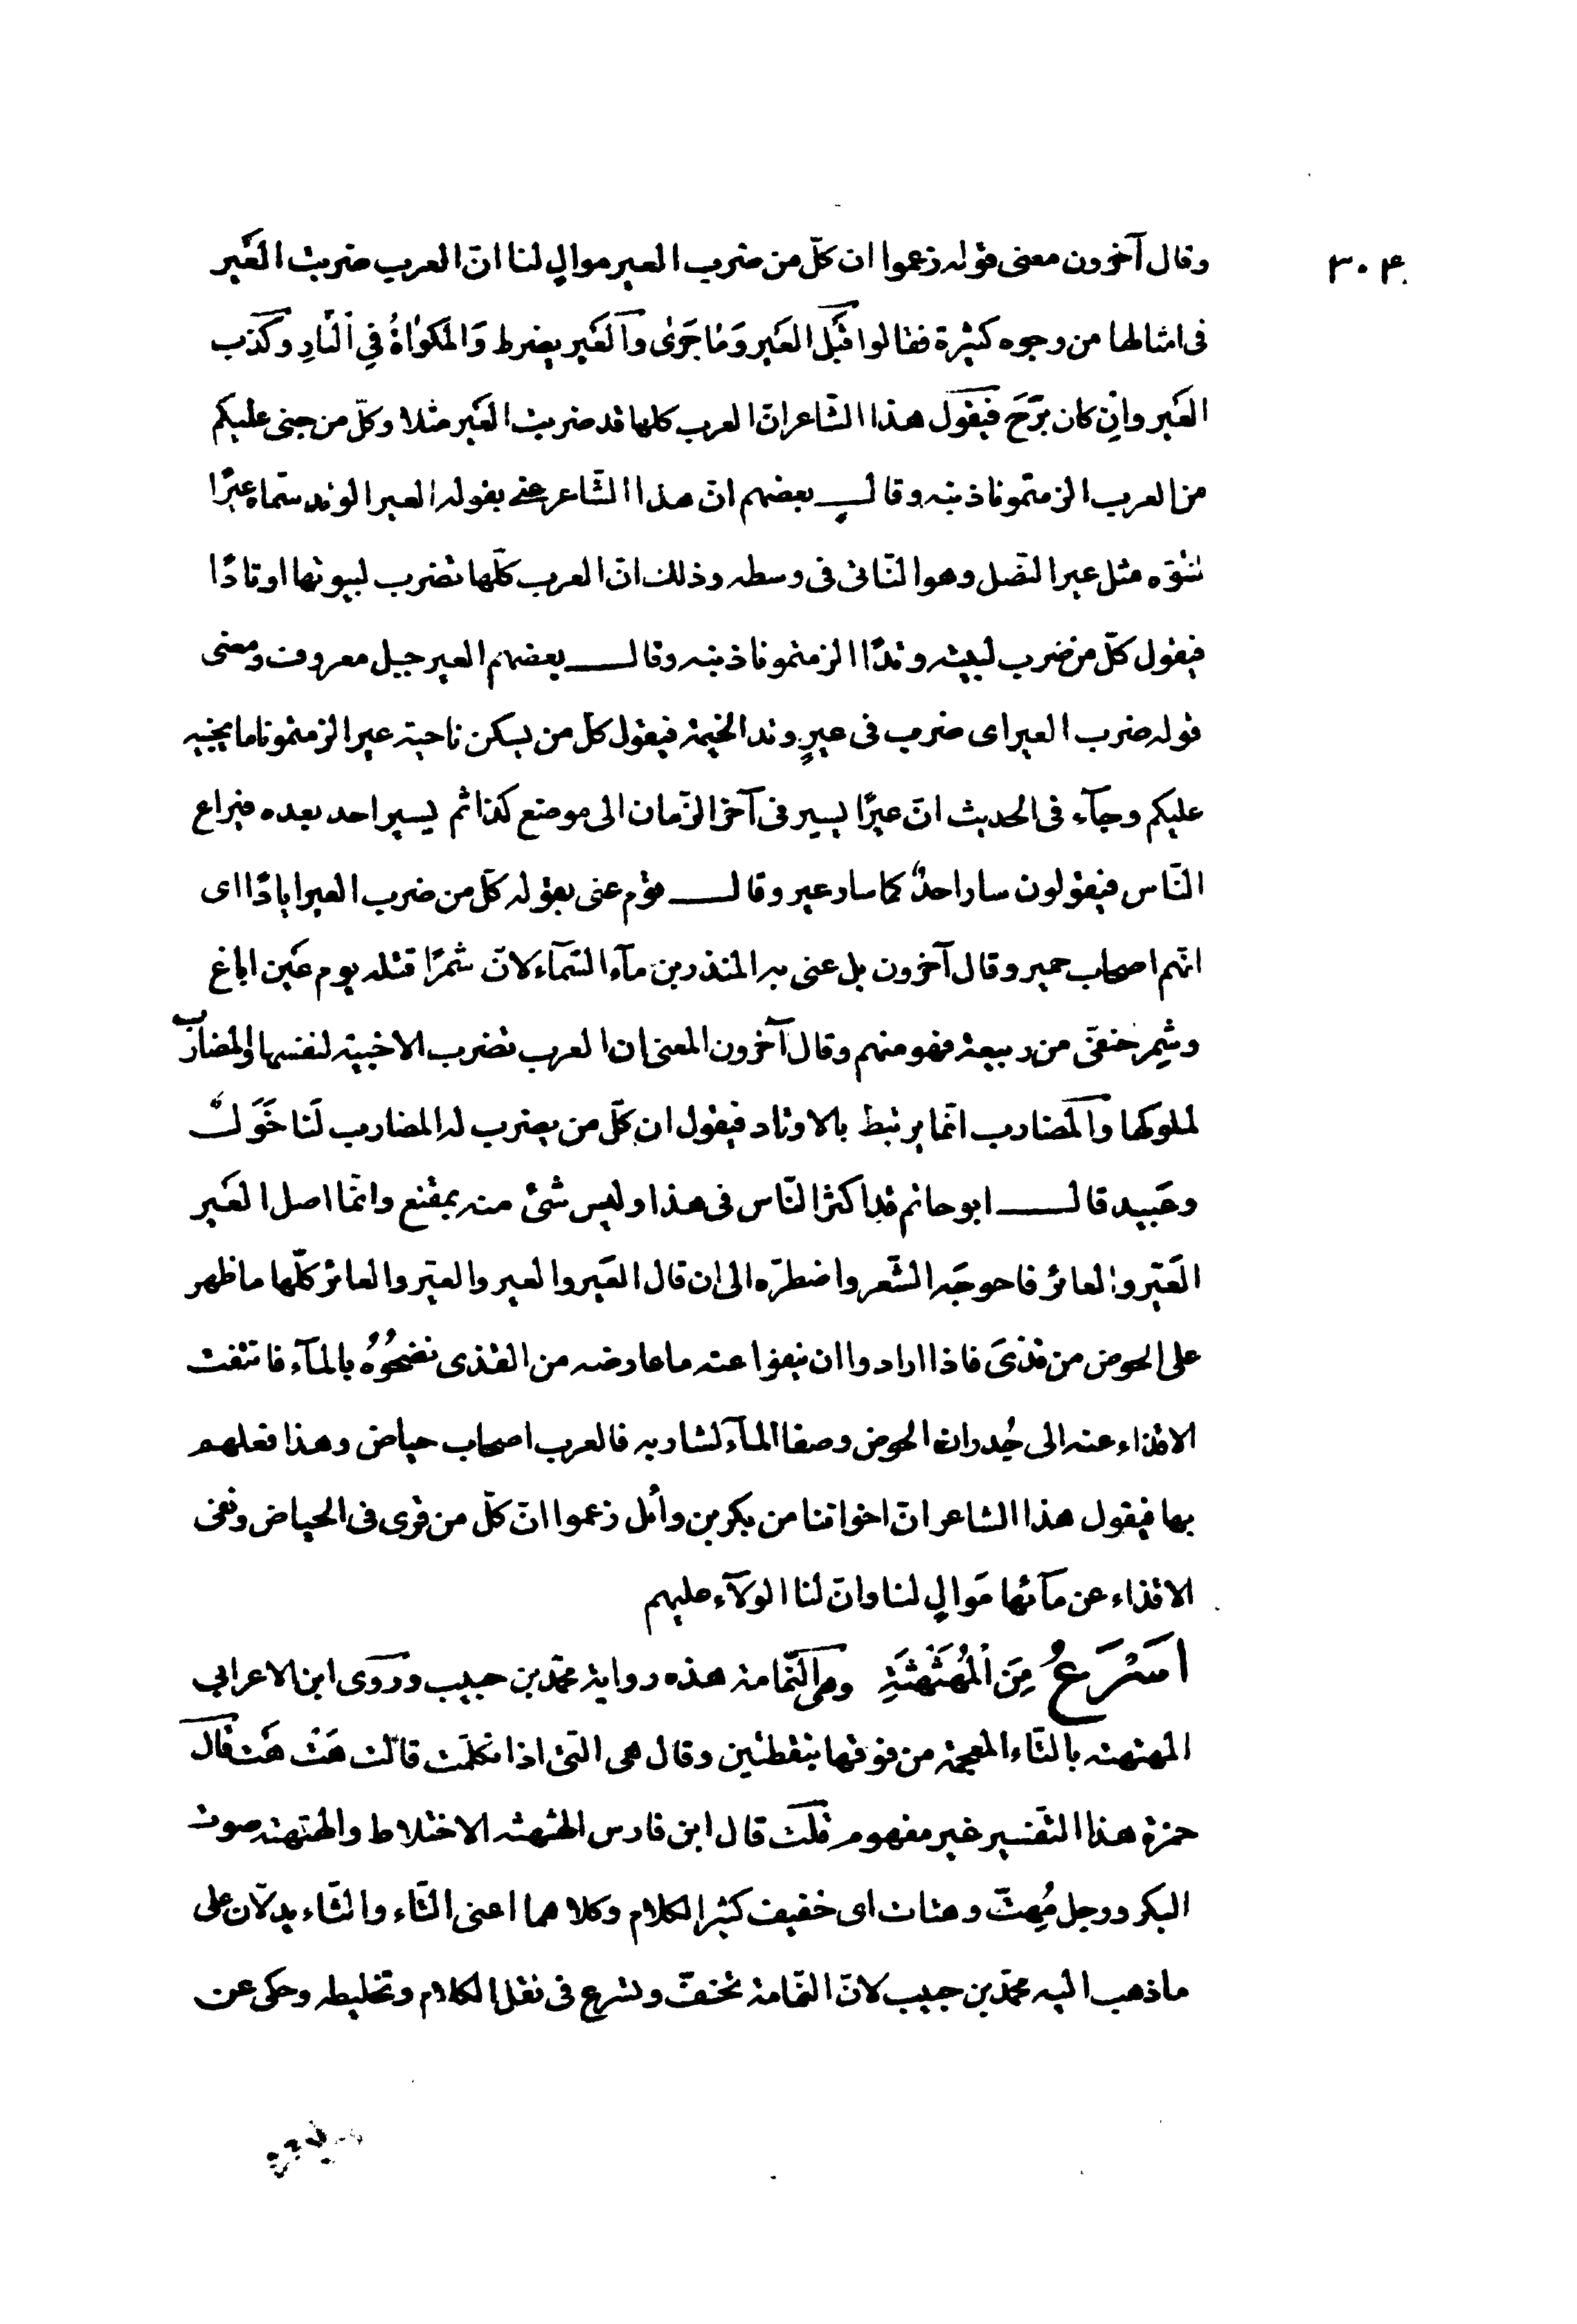 ٣٠٤
وقال آخرون معنى قوله زعموا ان كلّ من ضرب العير موالٍ لنا انّ العرب ضربت العَير
فى امثالها من وجوه كثيرة فقالوا قَبْلَ العَير وَمٰا جَرىٰ والعَير يضرط وَالمَكوٰاةُ فِي النّارِ وكذب
العَير وانِ كان بَرّحَ فيقول هذا الشّاعر انّ العرب كلها قد ضربت العَير مثلا وكلّ من جنى عليكم
من العرب الزمتمونا ذنبه وقال بعضهم انّ هذا الشّاعر عنى بقوله العير الوتد سمّاه عيرًا
لنتوّه مثل عير النّصل وهو النّاتئ فى وسطه وذلك انّ العرب كلّها تضرب لبيوتها اوتادًا
فيقول كلّ من ضرب لبيته وتدًا الزمتمونا ذنبه وقال بعضهم العير جبل معروف ومعنى
قوله ضرب العير اى ضرب فى عيرٍ وتد الخيمة فيقول كلّ من يسكن ناحية عير الزمتمونا ما يجنيه
عليكم وجآء فى الحديث انّ عيرًا يسير فى آخر الزّمان الى موضع كذا ثم يسير احد بعده فيراع
النّاس فيقولون سار احدٌ كما سار عير وقال قوم عنى بقوله كلّ من ضرب العير ايادًا اى
انّهم اصحاب حمير وقال آخرون بل عنى به المنذر بن مآء السّمآء لانّ شمرًا قتله يوم عَين اباغ
وشِمر حنفىّ من ربيعة فهو منهم وقال آخرون المعنى ان العرب تضرب الاخبية لنفسها والمضارب
لملوكها والمضارب انّما يرتبط بالاوتاد فيقول ان كلّ من يضرب له المضارب لَنا خَوَلٌ
وعَبيد قال ابو حاتم قد اكثر النّاس فى هذا وليس شئ منه بمقنع وانّما اصل العَير
العَيّر والعائر فاحوجَه الشّعر واضطرّه الى ان قال العَير والعير والعيّر والعائر كلّها ما ظهر
على الحوض من قذىً فاذا ارادوا ان ينفوا عنه ما عارضه من القذى نضحُوُه بالمآء فانتفت
الاقذاء عنه الى جُدران الحوض وصفا المآء لشاربه فالعرب اصحاب حياض وهذا فعلهم
بها فيقول هذا الشاعر انّ اخواننا من بكر بن وائل زعموا انّ كلّ من قرى فى الحياض ونفى
الاقذاء عن مآئها مَوالٍ لنا وانّ لنا الولآء عليهم
اَسْرَعُ مِنَ الْمُهَثْهِثَةِ وهى النّمّامة هذه رواية محمّد بن حبيب وروى ابن الاعرابى
المهتهته بالتّاء المعجمة من فوقها بنقطتين وقال هى التى اذا تكلّمت قالت هَتْ هَت قال
حمزة هذا التّفسير غير مفهوم قلت قال ابن فارس الهثهثه الاختلاط والهتهته صوت
البكر ورجل مُهِتّ وهتات اى خفيف كثير الكلام وكلاهما اعنى التّاء والثّاء يدلّان على
ما ذهب اليه محمّد بن حبيب لانّ النّمّامة تخفّ وتسرع فى نقل الكلام وتخليطه وحكى عن